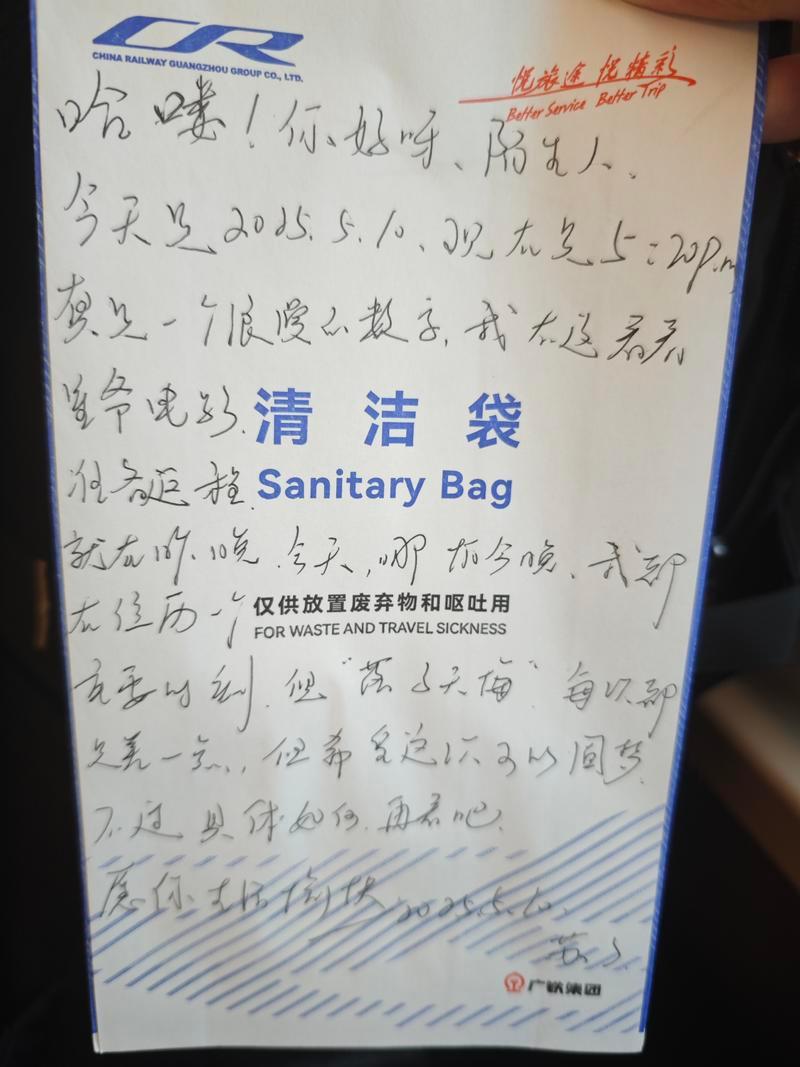 CR
CHINA RAILWAY GUANGZHOU GROUP CO., LTD.
悦旅途 悦精彩
Better Service Better Trip
哈喽！你好呀、陌生人、
今天是2025.5.10、现在是5:20p.m
真是一个浪漫的数字，我在这看着
准备电影.
清洁袋
准备返程.
Sanitary Bag
就在昨晚.今天,哪怕今晚、我都
在经历一个
仅供放置废弃物和呕吐用
FOR WASTE AND TRAVEL SICKNESS
重要时刻.但“落子无悔”每次都
只差一点,但希望这次可以圆梦.
不过具体如何.再看吧.
愿你生活愉快 2025.5.10.
苏
广铁集团